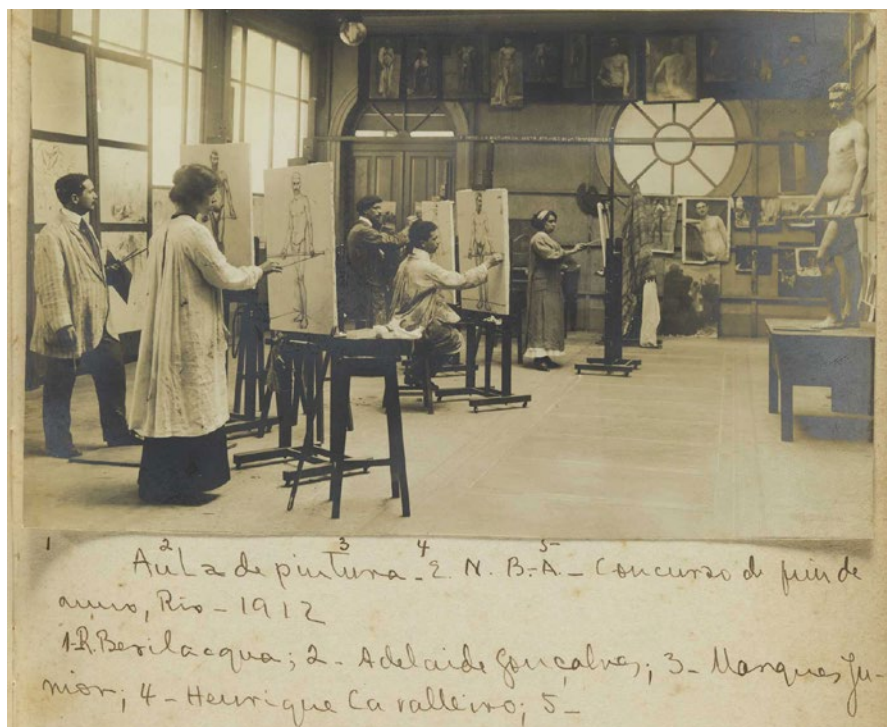 1 2 3 4 5
Aula de pintura - E. N. B. A. - Concurso de fim de
anno, Rio - 1912
1-R. Bevilacqua; 2- Adelaide Gonçalves; 3- Marques Ju-
nior; 4- Henrique Cavalleiro; 5-